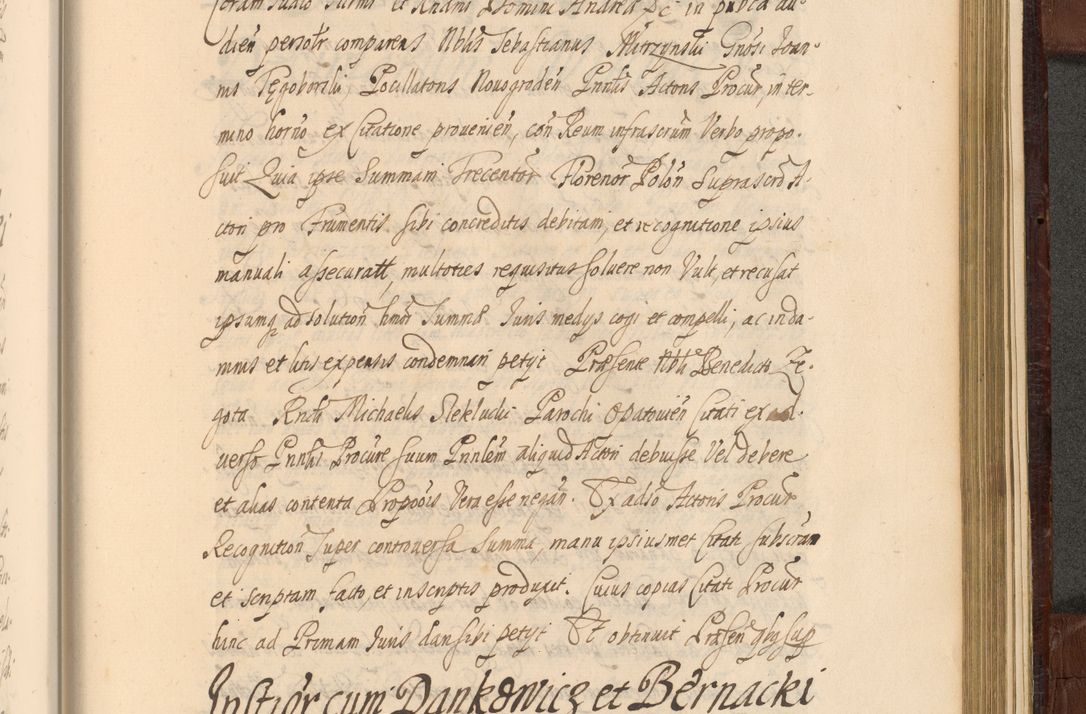 Coram Iudicio Surmi et Rndmi Domini Andreæ &c in publca au-
dien personlr comparens Nblis Sebastianus Mirzynski Gnosi Ioan-
nis Tegoborski, Pocillatoris Novogroden Pnnlis Actoris Procur, in ter-
mino horno ex Citatione provenien, con Reum infrascrum Verbo propo-
suit Quia ipse Summam Trecentor Florenor Polon Suprascro A-
ctori pro Frumentis sibi concreditis debitam, et recognitione ipsius
manuali assecuratt, multoties requisitus solvere non Vult, et recusat
ipsumq ad solution hmoi Summæ Iuris medys cogi et compelli, ac in da-
mnis et litis expensis condemnari petyt Præsente Nbli Benedicto Ze-
gota Rndi Michaelis Rekludii Parochi Opatovien Citati ex ad-
verso Pnnlis Procure suum Pnnlem aliquid Actori debuisse Vel debere
et alias contenta Propoois Vera esse negan. Et adso Actoris Procur
Recognition Super controversa Summa, manu ipsiusmet Citati subscram
et scriptam facto, et in scriptis produxit. Cuius copias Citati Procur
hinc ad Primam Iuris dari sibi petyt Et obtinuit Præsen qbq sup
Instigr cum Dankowicz et Bernacki